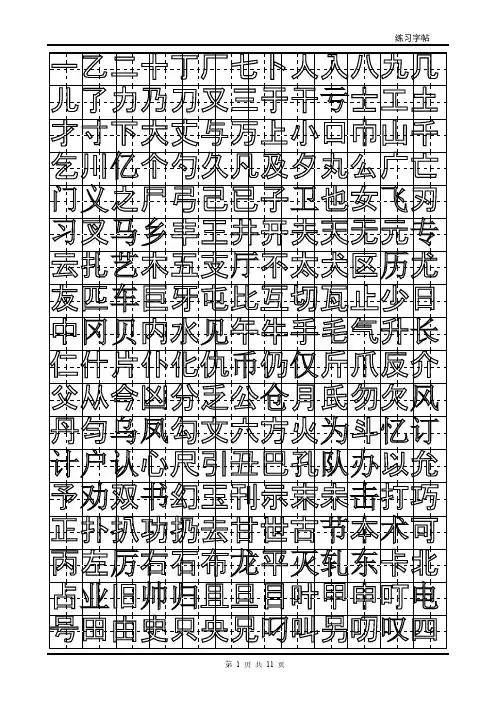 练习字帖
一乙二十丁厂七卜人入八九几
儿了力乃刀又三于干亏士工土
才寸下大丈与万上小口巾山千
乞川亿个勺久凡及夕丸么广亡
门义之尸弓己已子卫也女飞刃
习叉马乡丰王井开夫天无元专
云扎艺木五支厅不太犬区历尤
友匹车巨牙屯比互切瓦止少日
中冈贝内水见午牛手毛气升长
仁什片仆化仇币仍仅斤爪反介
父从今凶分乏公仓月氏勿欠风
丹匀乌凤勾文六方火为斗忆订
计户认心尺引丑巴孔队办以允
予劝双书幻玉刊示末未击打巧
正扑扒功扔去甘世古节本术可
丙左厉右石布龙平灭轧东卡北
占业旧帅归且旦目叶甲申叮电
号田由史只央兄叼叫另叨叹四
第 1 页 共 11 页